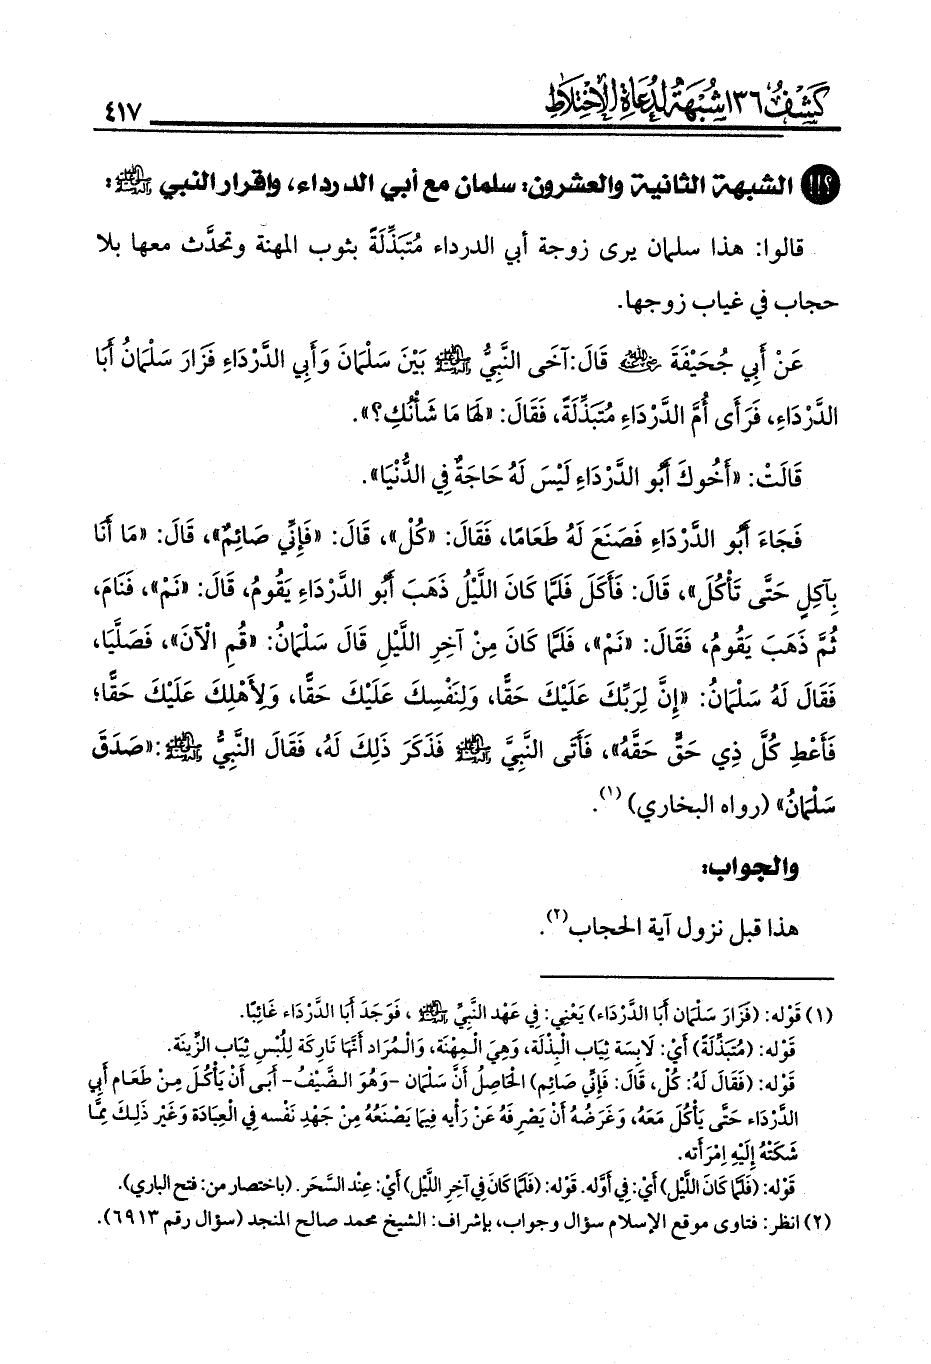 كشف ١٣٦ شبهة لدعاة الاختلاط ٤١٧
الشبهة الثانية والعشرون: سلمان مع أبي الدرداء، وإقرار النبي ﷺ:
قالوا: هذا سلمان يرى زوجة أبي الدرداء مُتَبَذِّلَةً بثوب المهنة وتحدَّث معها بلا
حجاب في غياب زوجها.
عَنْ أَبِي جُحَيْفَةَ رضي الله عنه قَالَ: آخَى النَّبِيُّ ﷺ بَيْنَ سَلْمَانَ وَأَبِي الدَّرْدَاءِ فَزَارَ سَلْمَانُ أَبَا
الدَّرْدَاءِ، فَرَأَى أُمَّ الدَّرْدَاءِ مُتَبَذِّلَةً، فَقَالَ: «لَهَا مَا شَأْنُكِ؟».
قَالَتْ: «أَخُوكَ أَبُو الدَّرْدَاءِ لَيْسَ لَهُ حَاجَةٌ فِي الدُّنْيَا».
فَجَاءَ أَبُو الدَّرْدَاءِ فَصَنَعَ لَهُ طَعَامًا، فَقَالَ: «كُلْ»، قَالَ: «فَإِنِّي صَائِمٌ»، قَالَ: «مَا أَنَا
بِآكِلٍ حَتَّى تَأْكُلَ»، قَالَ: فَأَكَلَ فَلَمَّا كَانَ اللَّيْلُ ذَهَبَ أَبُو الدَّرْدَاءِ يَقُومُ، قَالَ: «نَمْ»، فَنَامَ،
ثُمَّ ذَهَبَ يَقُومُ، فَقَالَ: «نَمْ»، فَلَمَّا كَانَ مِنْ آخِرِ اللَّيْلِ قَالَ سَلْمَانُ: «قُمِ الْآنَ»، فَصَلَّيَا،
فَقَالَ لَهُ سَلْمَانُ: «إِنَّ لِرَبِّكَ عَلَيْكَ حَقًّا، وَلِنَفْسِكَ عَلَيْكَ حَقًّا، وَلِأَهْلِكَ عَلَيْكَ حَقًّا؛
فَأَعْطِ كُلَّ ذِي حَقٍّ حَقَّهُ»، فَأَتَى النَّبِيَّ ﷺ فَذَكَرَ ذَلِكَ لَهُ، فَقَالَ النَّبِيُّ ﷺ: «صَدَقَ
سَلْمَانُ» (رواه البخاري) (١).
والجواب:
هذا قبل نزول آية الحجاب(٢).
(١) قَوْله: (فَزَارَ سَلْمَان أَبَا الدَّرْدَاء) يَعْنِي: فِي عَهْد النَّبِيِّ ﷺ، فَوَجَدَ أَبَا الدَّرْدَاء غَائِبًا.
قَوْله: (مُتَبَذِّلَةً) أَيْ: لَابِسَة ثِيَاب الْبِذْلَة، وَهِيَ الْمِهْنَة، وَالْمُرَاد أَنَّهَا تَارِكَة لِلُبْسِ ثِيَاب الزِّينَة.
قَوْله: (فَقَالَ لَهُ: كُلْ، قَالَ: فَإِنِّي صَائِم) الحَاصِلُ أَنَّ سَلْمَان -وَهُوَ الضَّيْفُ- أَبَى أَنْ يَأْكُلَ مِنْ طَعَام أَبِي
الدَّرْدَاء حَتَّى يَأْكُلَ مَعَهُ، وَغَرَضُهُ أَنْ يَصْرِفَهُ عَنْ رَأْيه فِيمَا يَصْنَعُهُ مِنْ جَهْدِ نَفْسه فِي الْعِبَادَة وَغَيْر ذَلِكَ مِمَّا
شَكَتْهُ إِلَيْهِ اِمْرَأَته.
قَوْله: (فَلَمَّا كَانَ اللَّيْل) أَيْ: فِي أَوَّله. قَوْله: (فَلَمَّا كَانَ فِي آخِرِ اللَّيْل) أَيْ: عِنْد السَّحَر. (باختصار من: فتح الباري).
(٢) انظر: فتاوى موقع الإسلام سؤال وجواب، بإشراف: الشيخ محمد صالح المنجد (سؤال رقم ٦٩١٣).